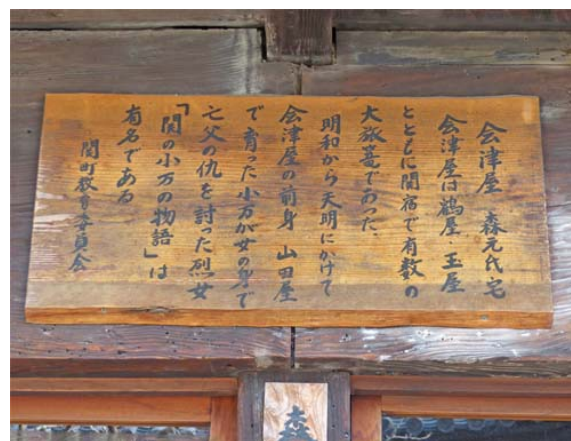 会津屋 森元氏宅
会津屋は鶴屋・玉屋
とともに関宿で有数の
大旅篭であった。
明和から天明にかけて
会津屋の前身 山田屋
で育った小万が女の身で
亡父の仇を討った烈女
「関の小万の物語」は
有名である
関町教育委員会
森